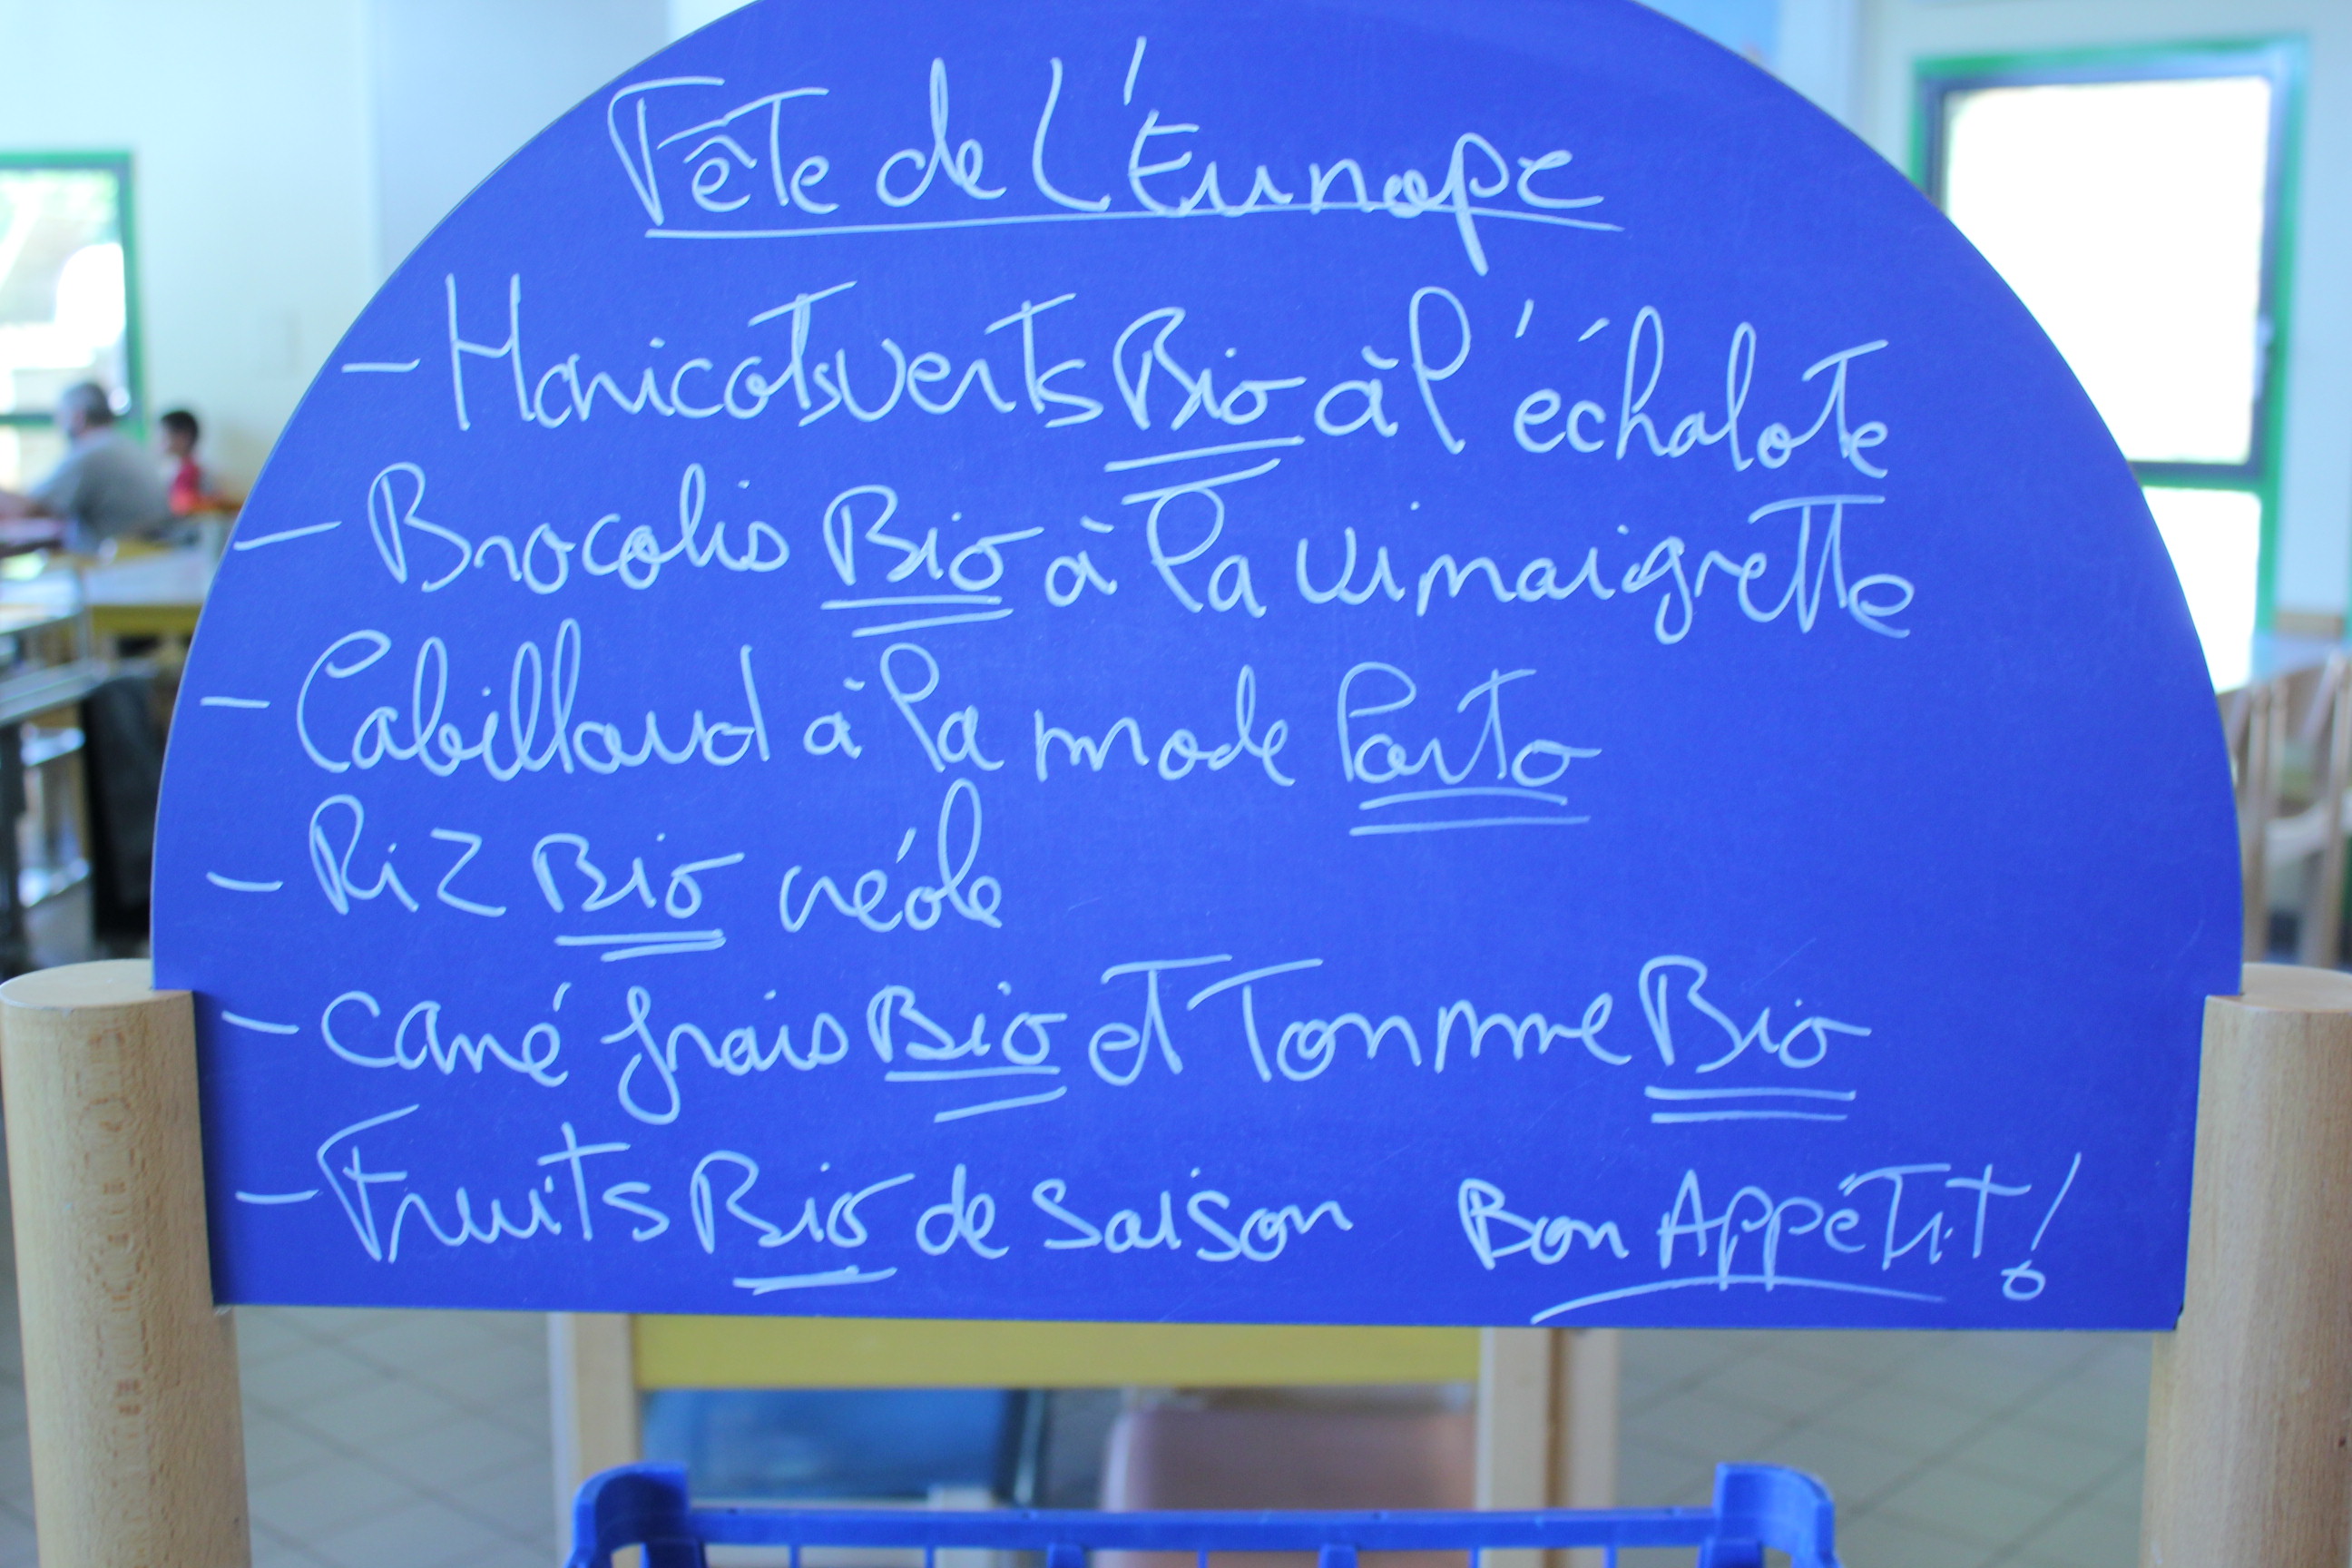 Fête de l'Europe
- Haricots verts Bio à l'échalote
- Brocolis Bio à la vinaigrette
- Cabillaud à la mode Porto
- Riz Bio créole
- Carré frais Bio et Tomme Bio
- Fruits Bio de saison Bon Appétit !